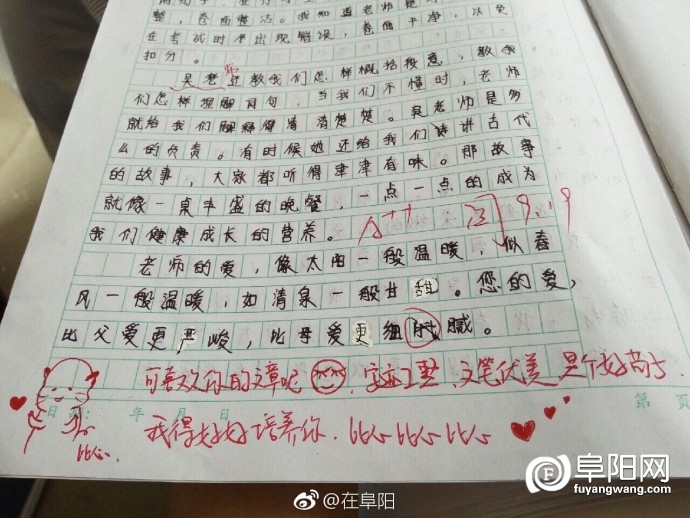 整，卷面整洁。我知道老师是
在考试时不出现错误，卷面干净，以免
扣分。
吴老师还教我们怎样概括段意，教我
们怎样理解句，当我们不懂时，老师
就给我们解释得清清楚楚。吴老师是多
么的负责。有时候她还给我们讲古代
的故事，大家都听得津津有味。那故事
就像一桌丰盛的晚餐，一点一点的成为
我们健康成长的营养。
A++ 9.19
老师的爱，像太阳一般温暖，似春
风一般温暖，如清泉一般甘甜。您的爱，
比父爱更严峻，比母爱更细腻。
可喜欢你的文章呢，字迹工整，文笔优美，是个好苗子，
我得好好培养你，比心比心比心
比心
年 月 日
第 页
@在阜阳
阜阳网
fuyangwang.com